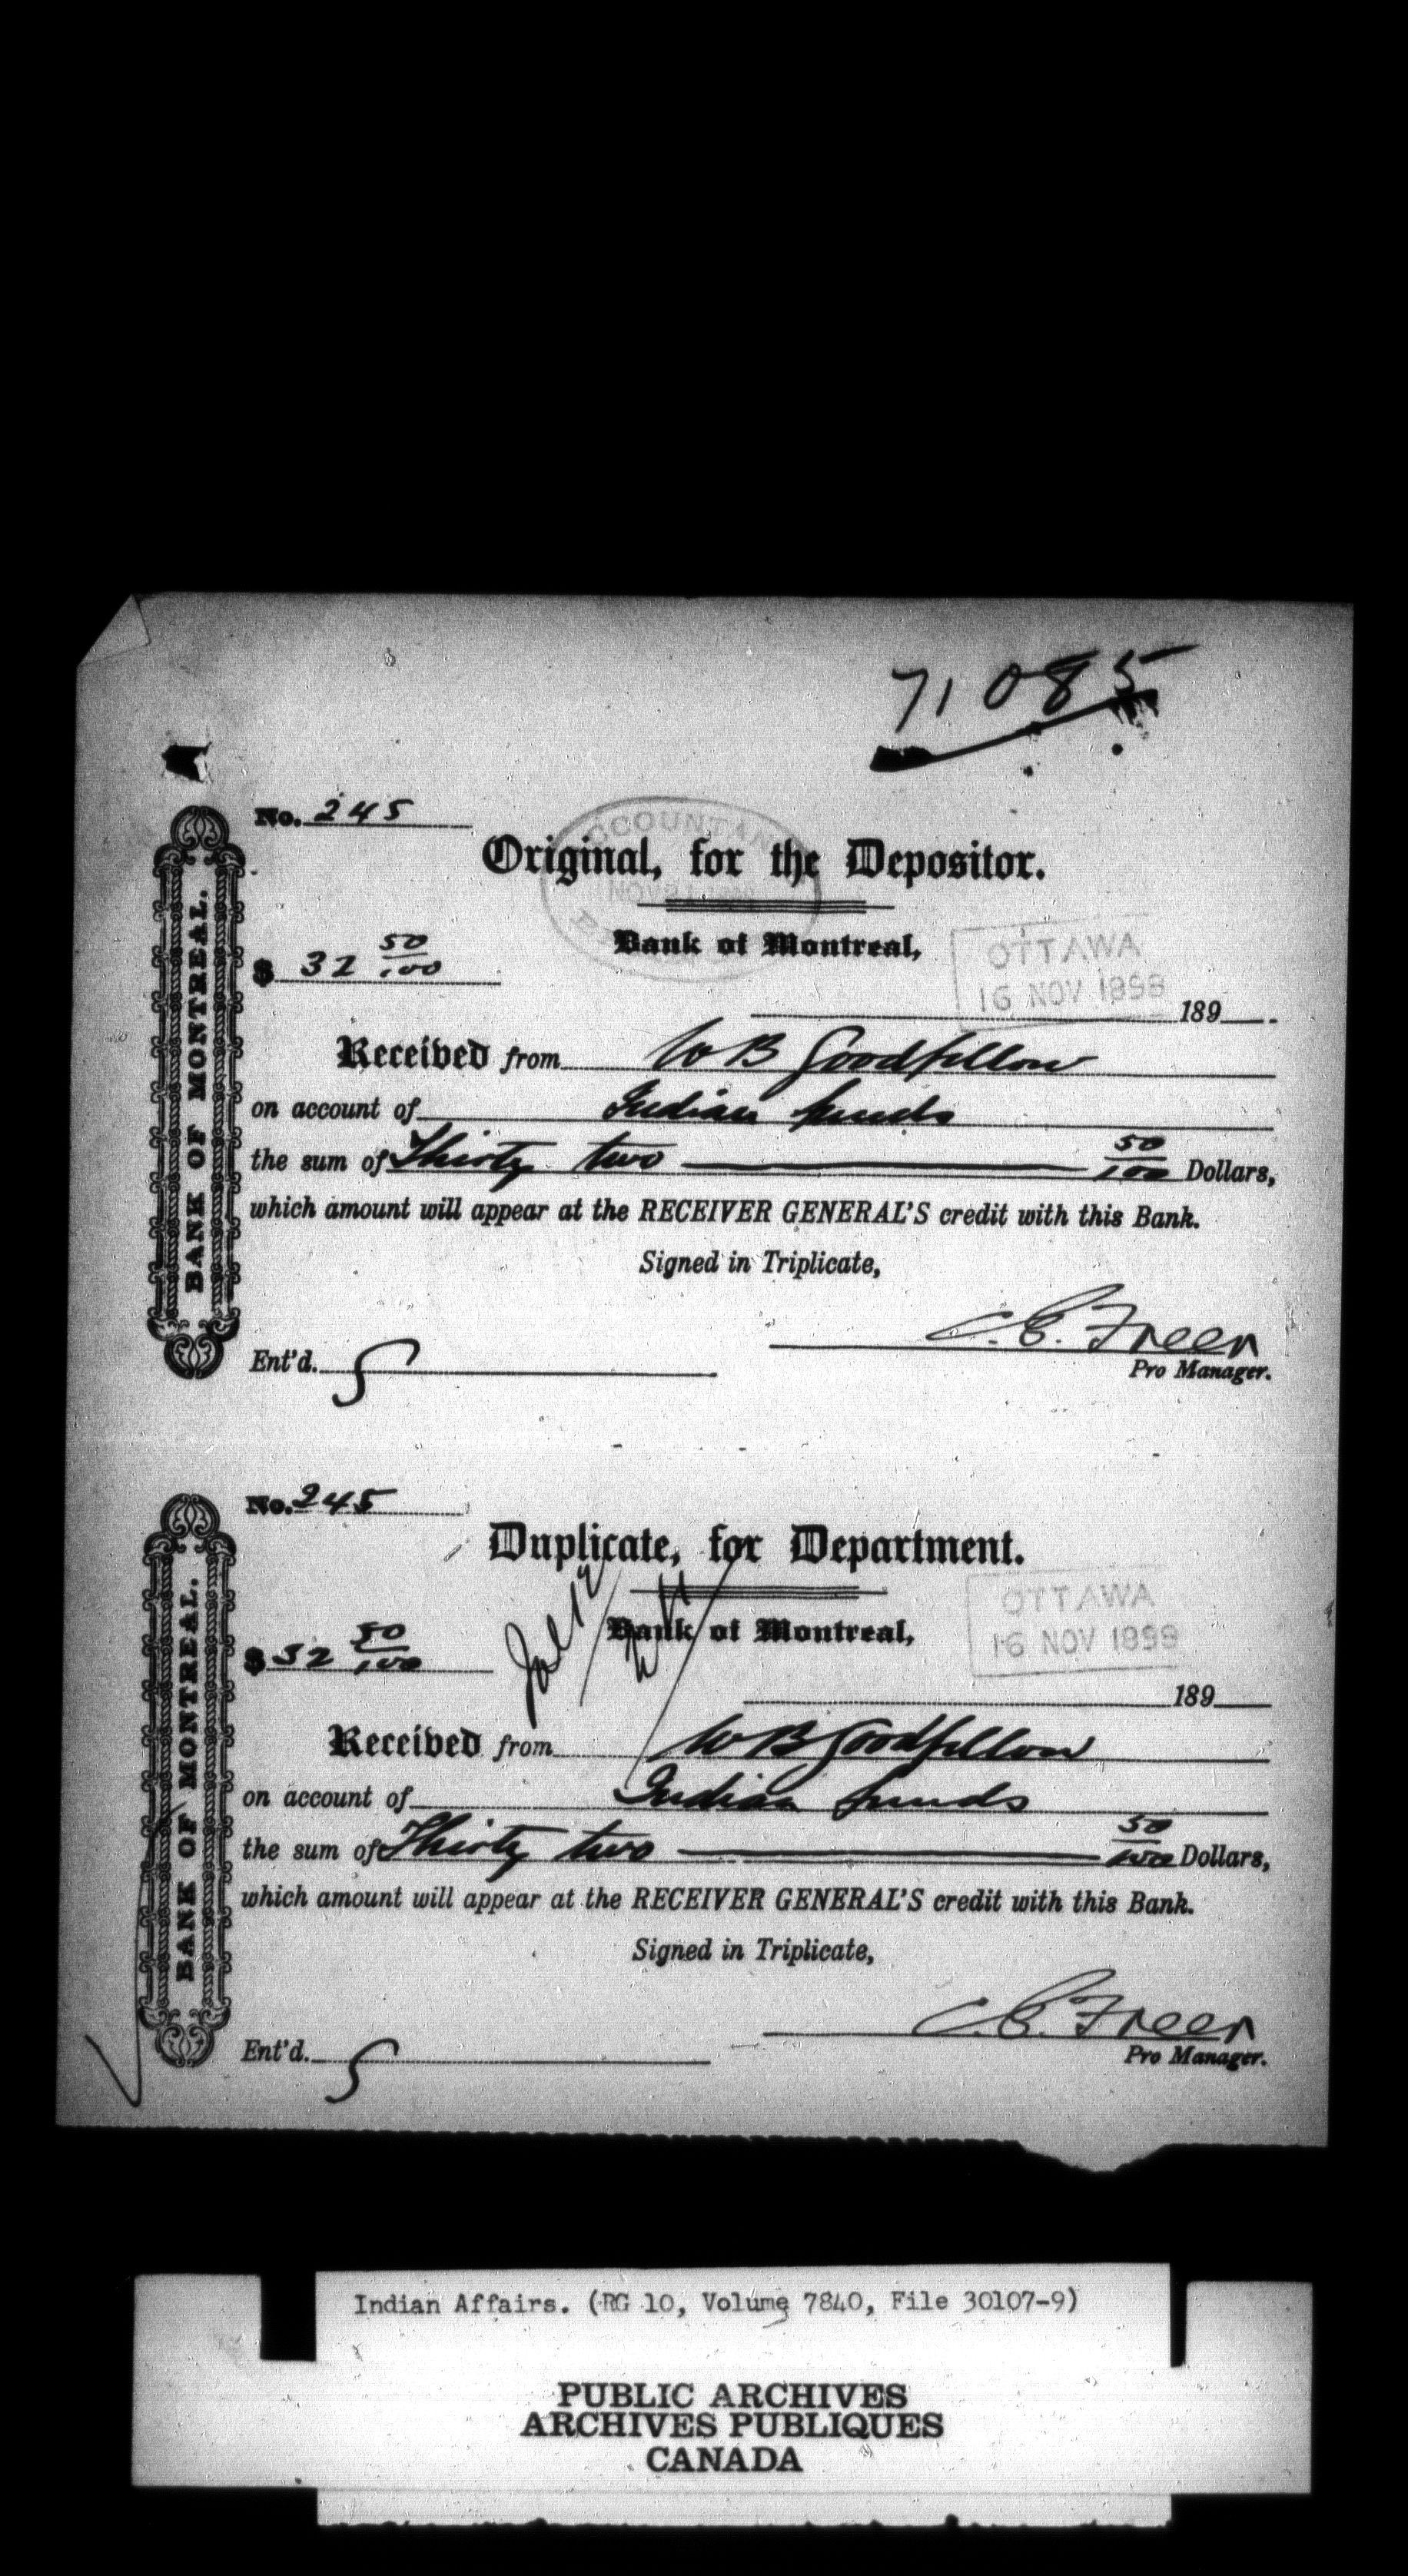 71085
No. 245
ACCOUNTAN
Original, for the Depositor.
NOV
BANK OF MONTREAL.
$ 32 50/100
Bank of Montreal,
OTTAWA
16 NOV 1898
189
Received from W B Goodfellow
on account of Indian funds
the sum of Thirty two 50/100 Dollars,
which amount will appear at the RECEIVER GENERAL'S credit with this Bank.
Signed in Triplicate,
C. E. Freer
Ent'd. S
Pro Manager.
No. 245
Duplicate, for Department.
BANK OF MONTREAL.
$ 32 50/100
Bank of Montreal,
OTTAWA
16 NOV 1898
189
Received from W B Goodfellow
on account of Indian funds
the sum of Thirty two 50/100 Dollars,
which amount will appear at the RECEIVER GENERAL'S credit with this Bank.
Signed in Triplicate,
C. E. Freer
Ent'd. S
Pro Manager.
Indian Affairs. (RG 10, Volume 7840, File 30107-9)
PUBLIC ARCHIVES
ARCHIVES PUBLIQUES
CANADA